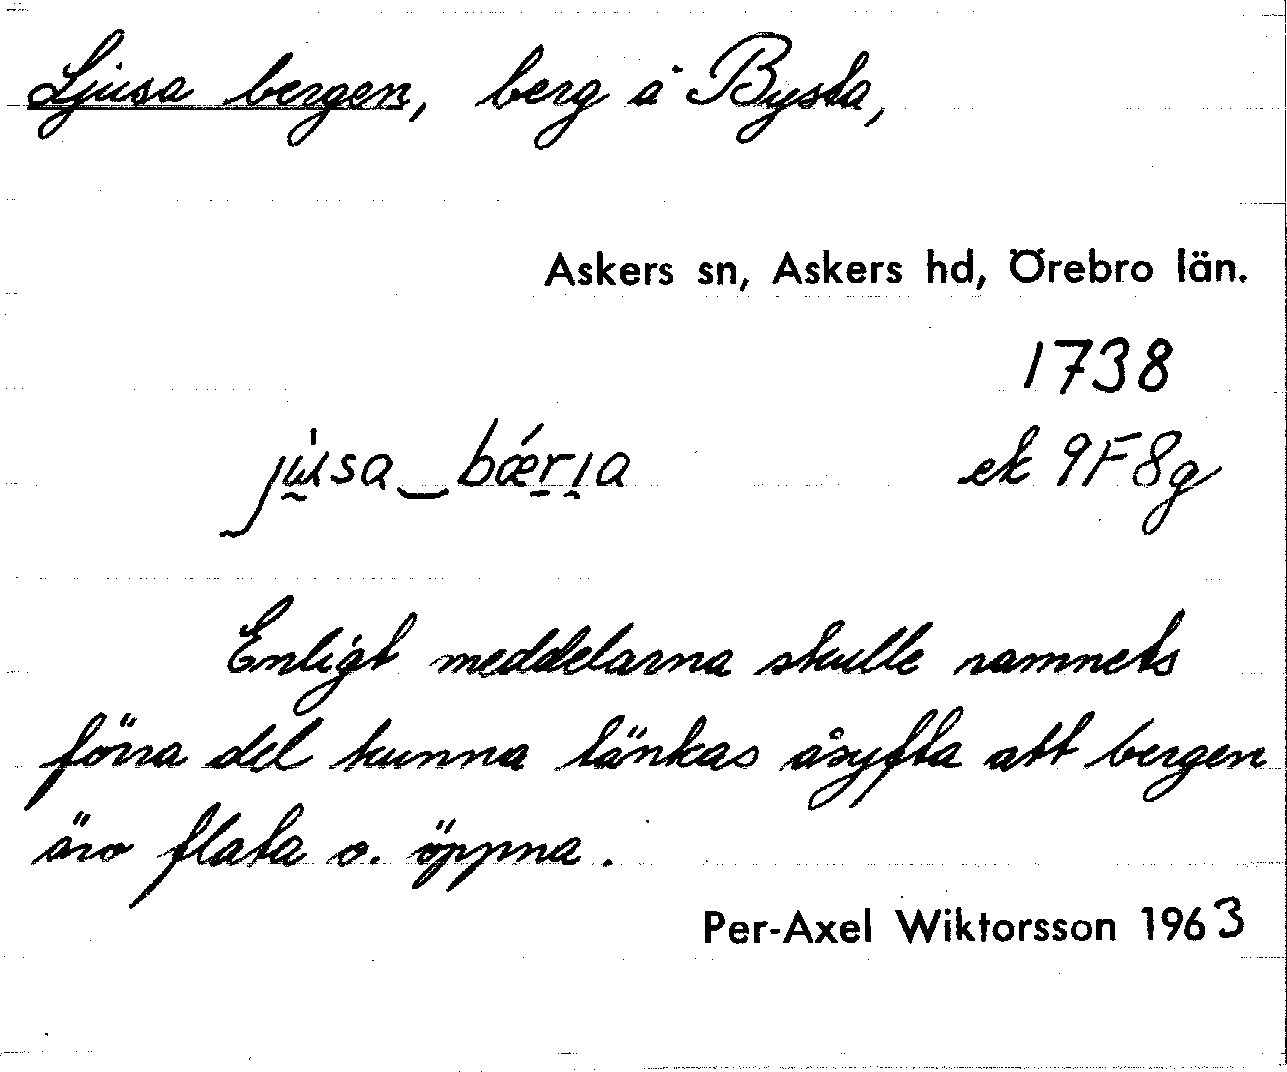 Ljusa bergen, berg å Bysta,
Askers sn, Askers hd, Örebro län.
1738
ek 9F8g
Enligt meddelarna skulle namnets
förra del kunna tänkas åsyfta att bergen
äro flata o. öppna.
Per-Axel Wiktorsson 1963